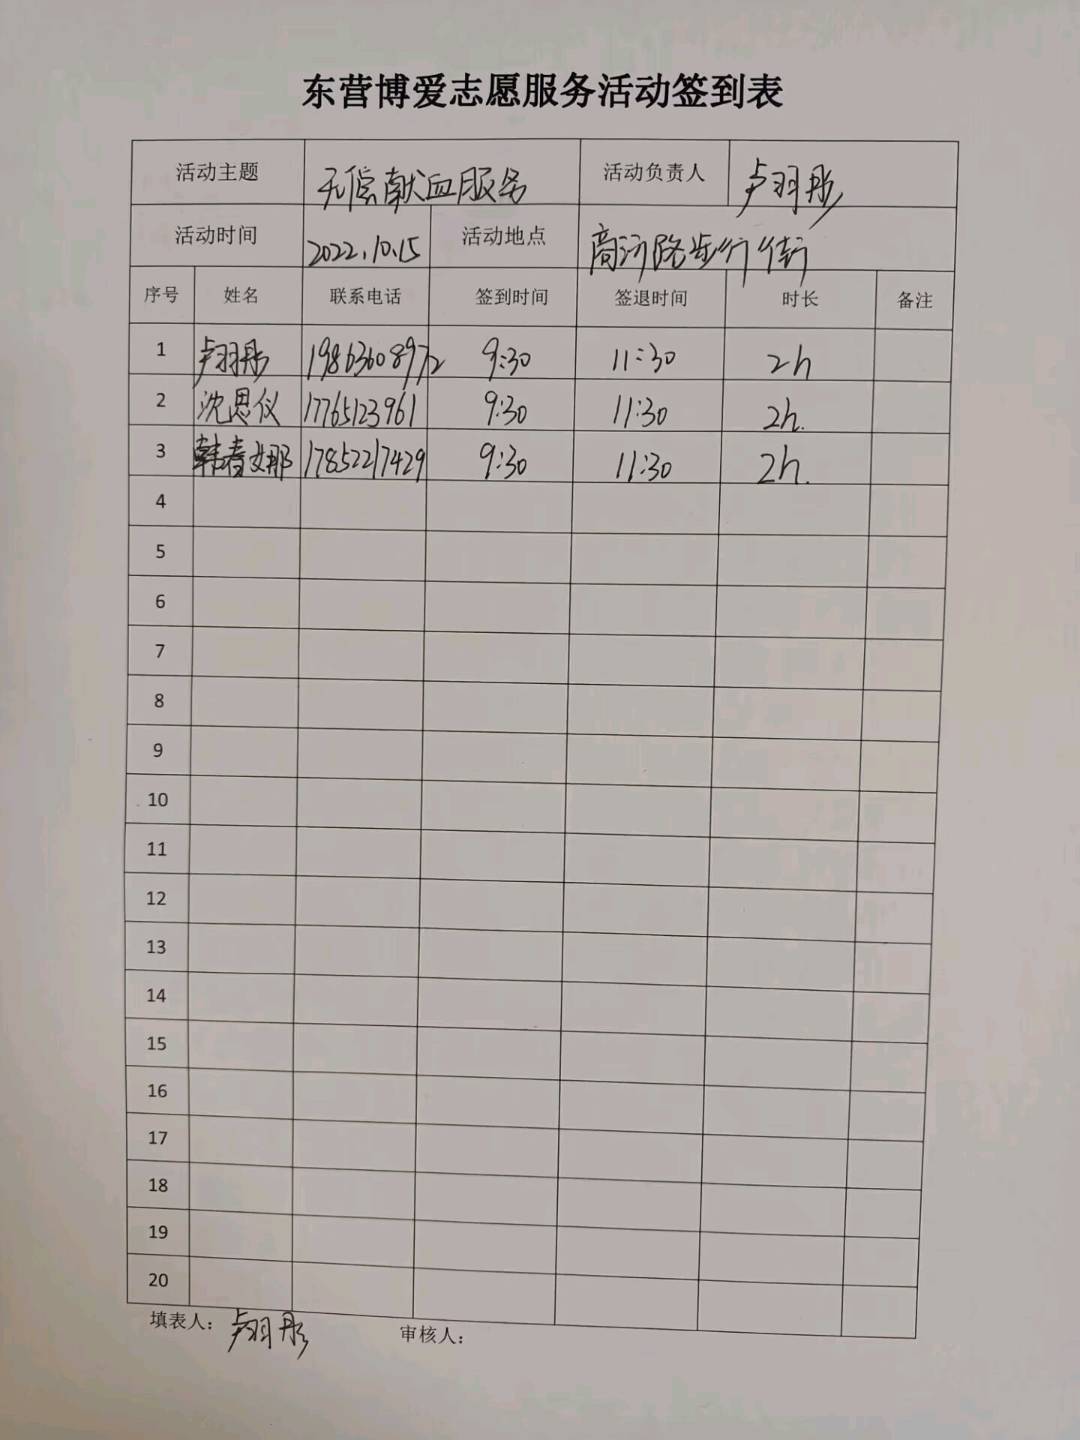 东营博爱志愿服务活动签到表
活动主题 无偿献血服务 活动负责人 卢羽彤
活动时间 2022.10.15 活动地点 商河路步行街
序号 姓名 联系电话 签到时间 签退时间 时长 备注
1 卢羽彤 19863608972 9:30 11:30 2h
2 沈思仪 17765123961 9:30 11:30 2h.
3 韩春娜 17852217429 9:30 11:30 2h.
4
5
6
7
8
9
10
11
12
13
14
15
16
17
18
19
20
填表人：卢羽彤 审核人：